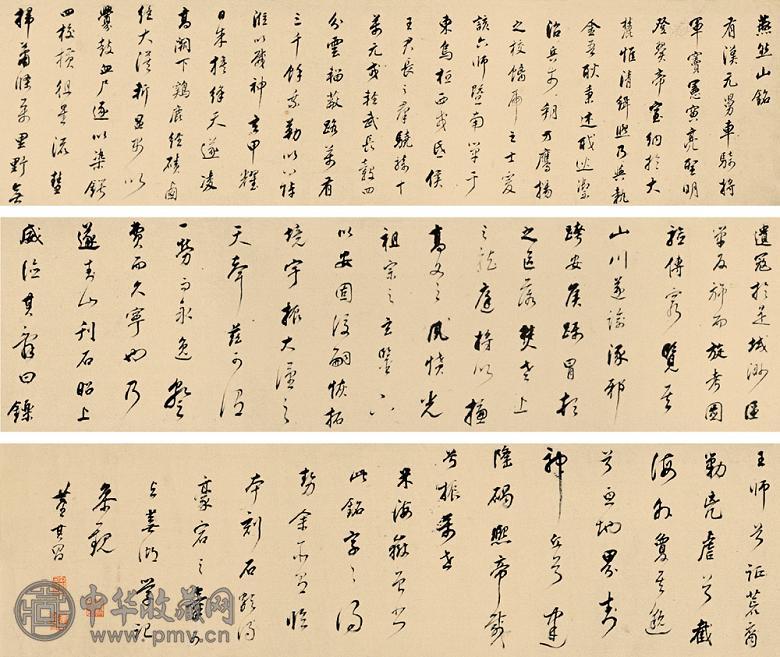 燕然山銘
有漢元舅車騎將
軍竇憲寅亮聖明
登翼帝室納於大
麓惟清緝熙乃與執
金吾耿秉述職巡禦
治兵於朔方鷹揚
之校螭虎之士爰
該六師暨南單于
東烏桓西戎氐侯
王君長之群驍騎十
萬元戎輕武長轂四
分雲輜蔽路萬有
三千餘乘勒以八陣
莅以威神玄甲耀
日朱旗絳天遂凌
高闕下雞鹿經磧鹵
絕大漠斬溫禺以
釁鼓血尸逐以染鍔
四校橫徂星流彗
掃蕭條萬里野無
遺寇於是域滅區
單反旆而旋考圖
驗傳窮覽其
山川遂踰涿邪
跨安侯躡冒頓
之區落焚老上
之龍庭將以攄
高文之憤光
祖宗之玄靈下
以安固後嗣恢拓
境宇振大漢之
天聲茲可謂
一勞而永逸暫
費而久寧也乃
遂封山刊石昭上
威德其辭曰鑠
王師兮征荒裔
勦虐兮截
海外夐其邈
兮亙地界封
神丘兮建
隆碣熙帝載
兮振萬世
米海嶽曾書
此銘字字得
勢余不及臨
本刻石
豪宕之
學記
參觀
董其昌
中华收藏网
www.pmv.cn